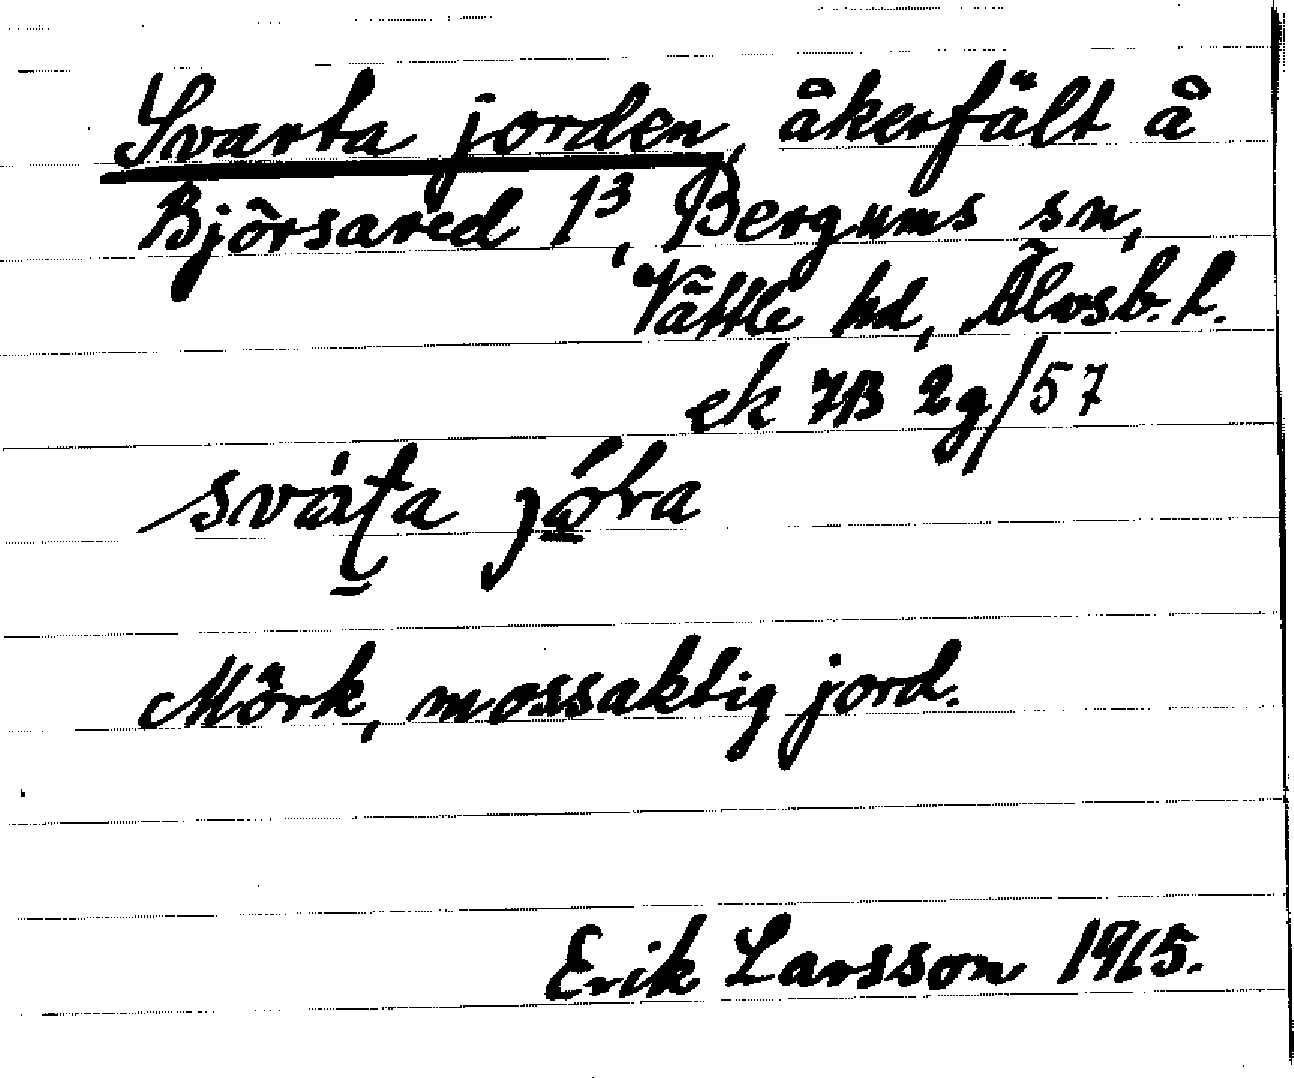 Svarta jorden, åkerfält å
Björsared 1³, Bergums sn,
Vättle hd, Älvsb. l.
ek 7B 2g/57
svát̠a jó̠ra
Mörk, mossaktig jord.
Erik Larsson 1965.